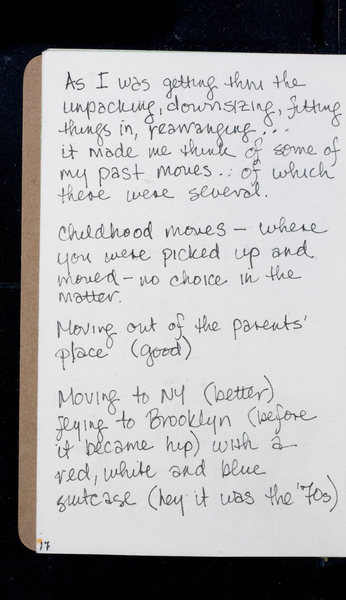 As I was getting thru the
unpacking, downsizing, fitting
things in, rearranging...
it made me think of some of
my past moves... of which
there were several.
Childhood moves – where
you were picked up and
moved – no choice in the
matter.
Moving out of the parents'
place (good)
Moving to NY (better)
flying to Brooklyn (before
it became hip) with a
red, white and blue
suitcase (hey it was the '70s)
17